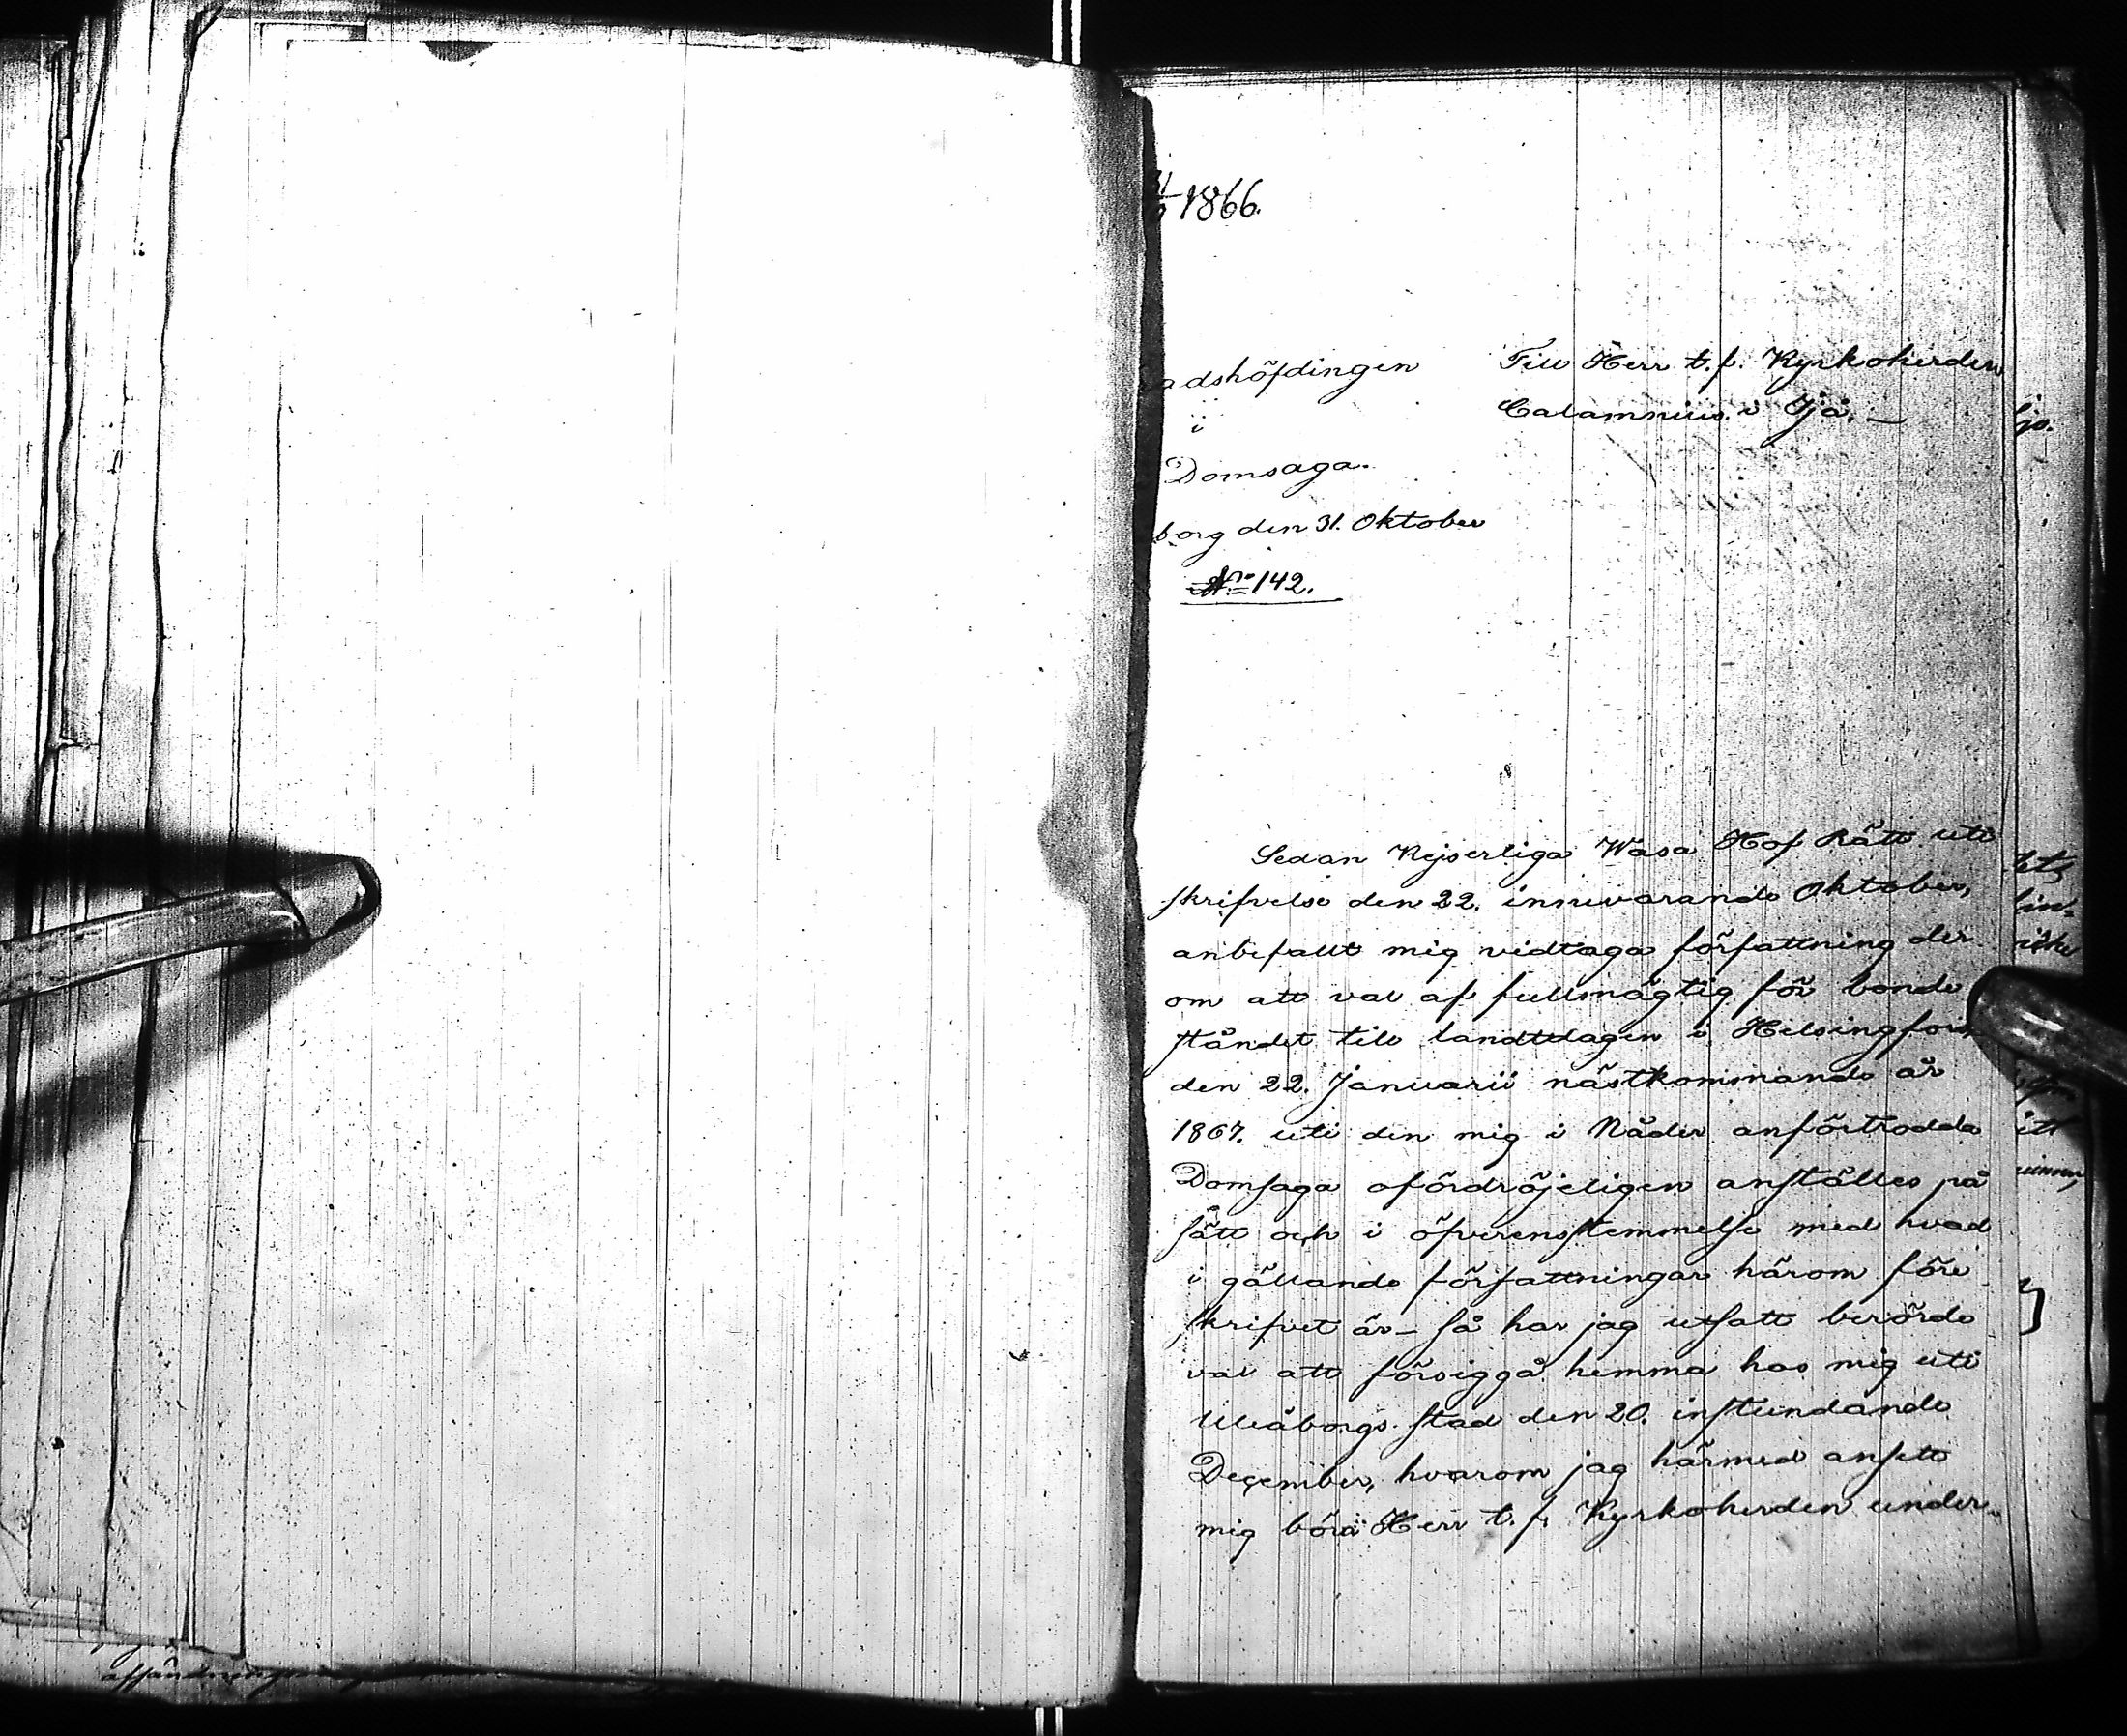 1866.
adshöfdingen
i
Domsaga.
borg den 31. Oktober
No 142.
Till Herr t.f. Kyrkoherden
Calamnius i Ijå. —
Sedan Kejserliga Wasa Hof Rätt uti
skrifvelse den 22. innevarande Oktober,
anbefallt mig vidtaga författning der
om att val af fullmägtig för bonde
ståndet till landtdagen i Helsingfors
den 22. Januarii nästkommande år
1867. uti den mig i Nåder anförtrodda
Domsaga ofördröjeligen anställes på
sätt och i öfverensstemmelse med hvad
i gällande författningar härom före
skrifvet är — så har jag utsatt berörde
val att försiggå hemma hos mig uti
Uleåborgs stad den 20. instundande
December, hvarom jag härmed ansett
mig böra Herr t.f. Kyrkoherden under